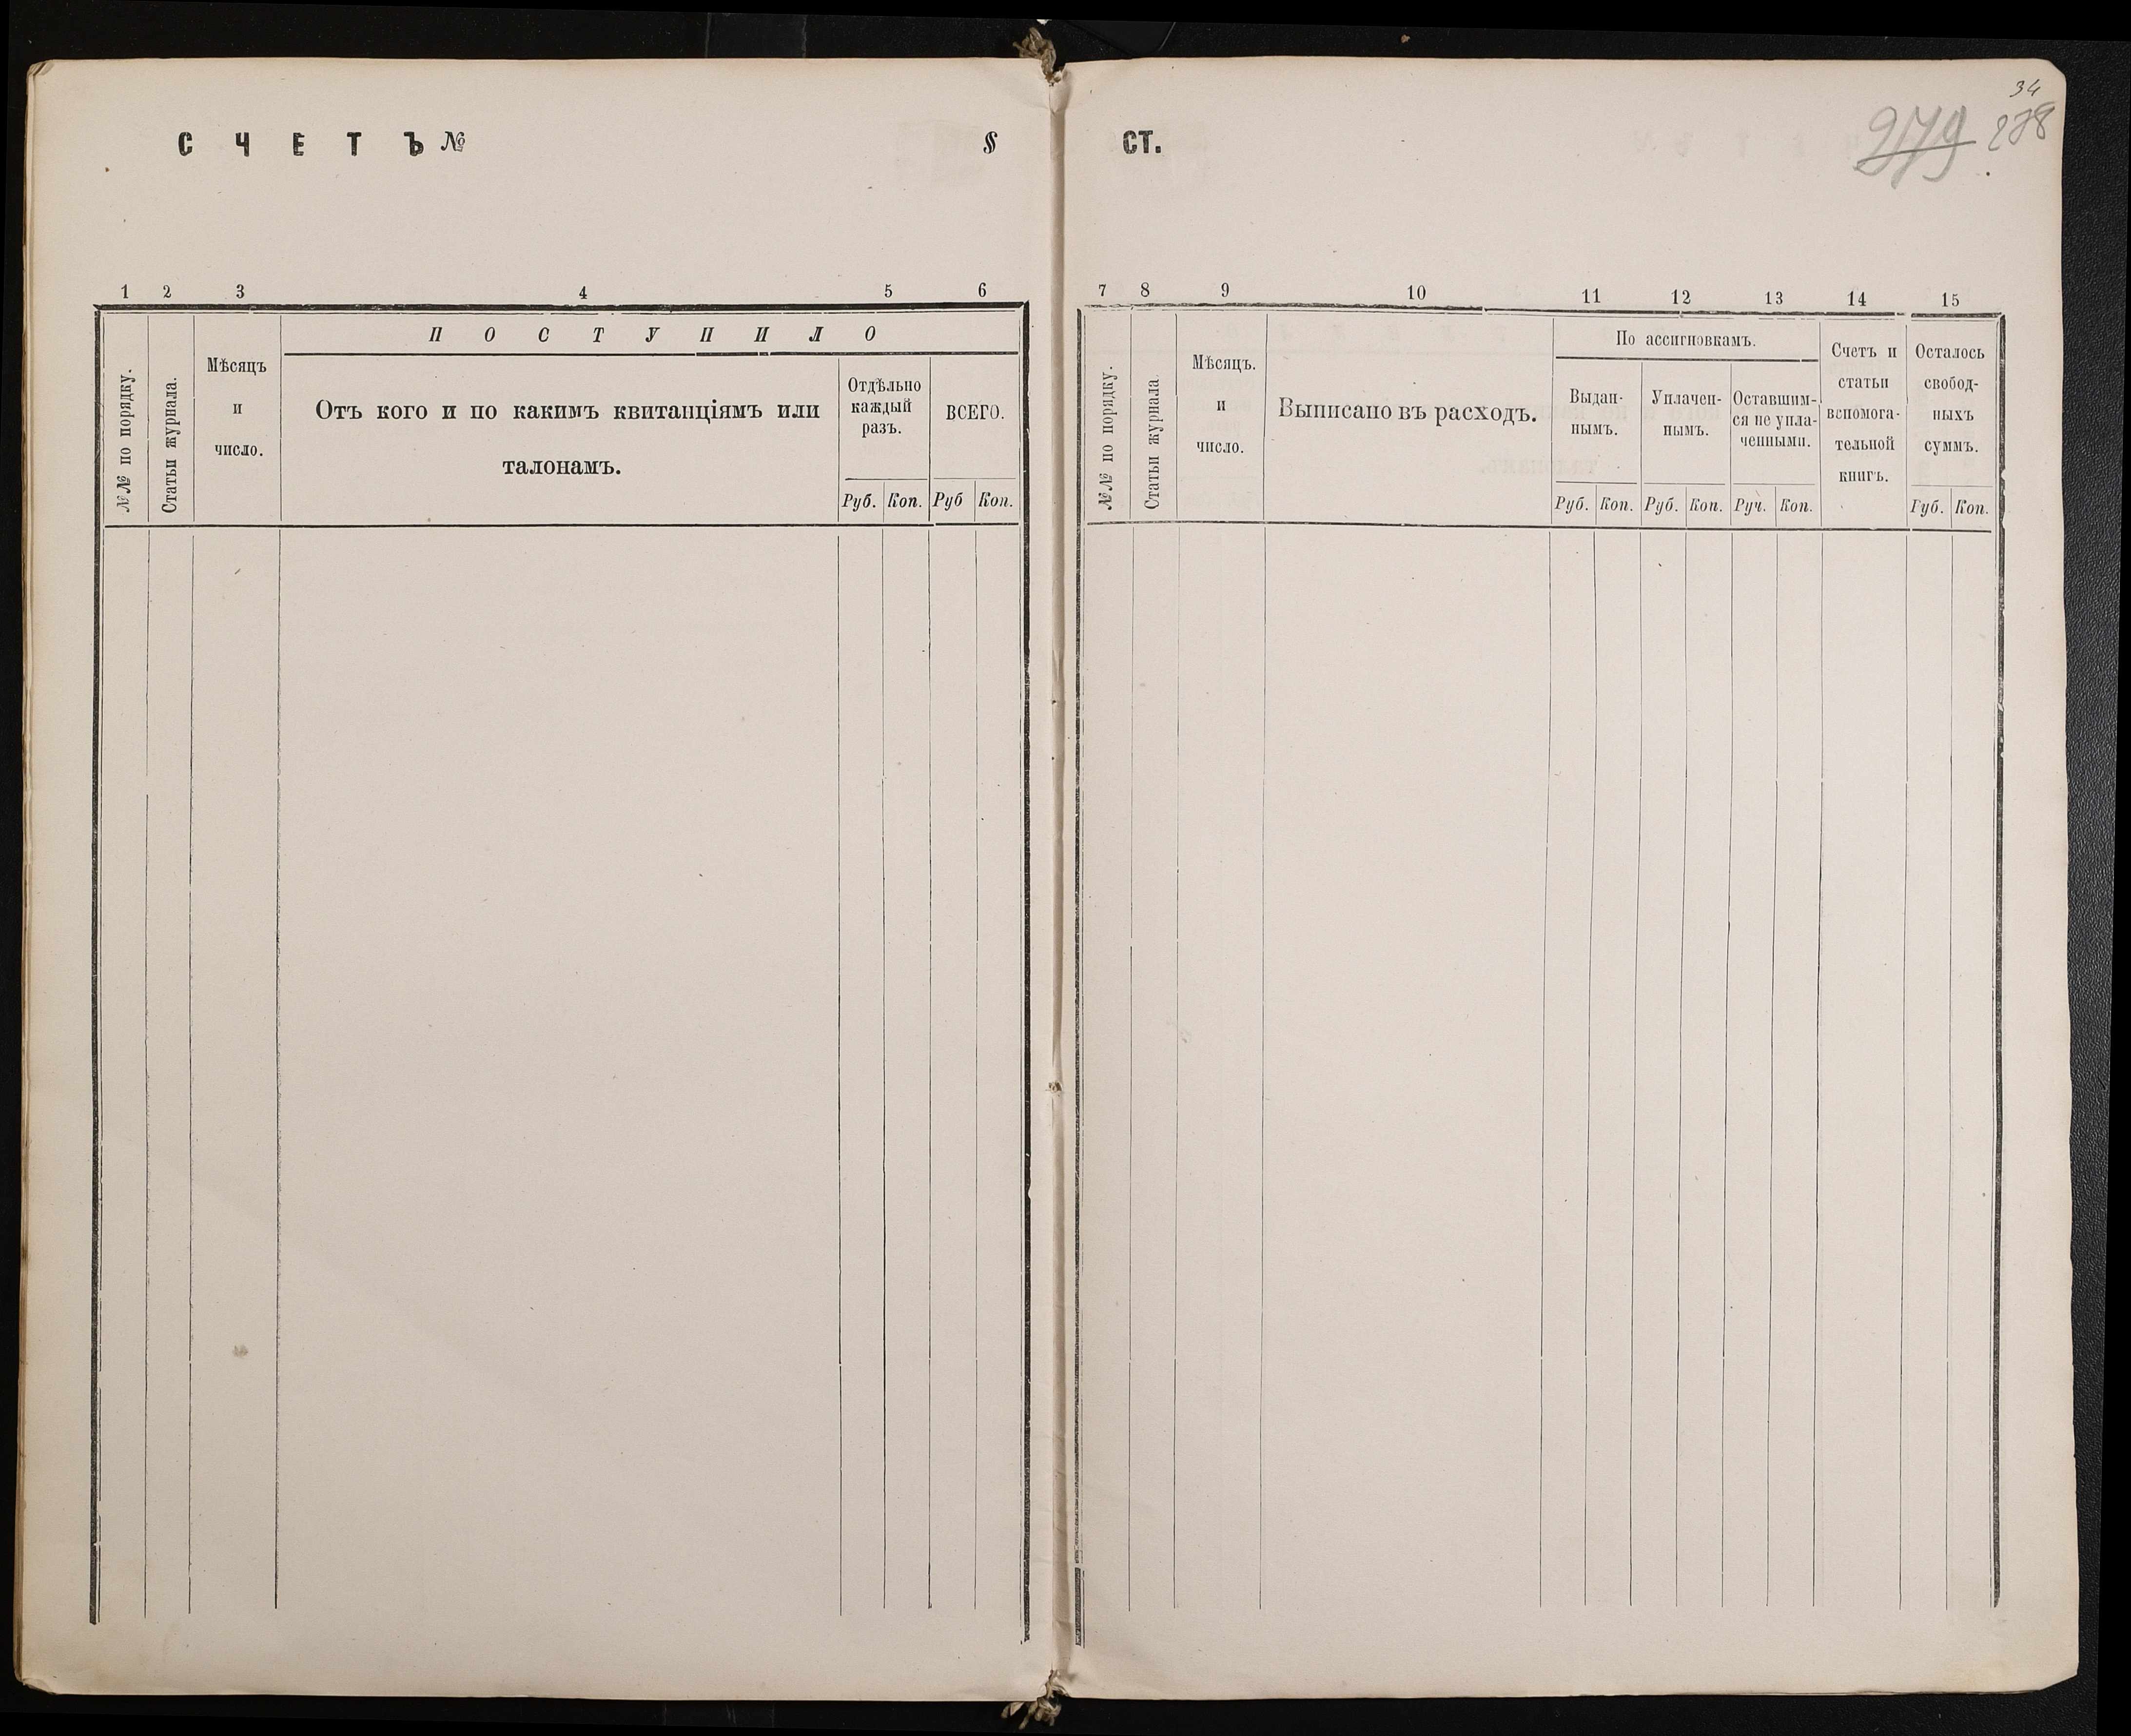 С Ч Е Т Ъ № § СТ.
34
279 278
1 2 3 4 5 6
П О С Т У П И Л О
№№ по порядку.
Статьи журнала.
Мѣсяцъ
и
число.
Отъ кого и по какимъ квитанціямъ или
талонамъ.
Отдѣльно
каждый
разъ.
ВСЕГО.
Руб. Коп. Руб Коп.
7 8 9 10 11 12 13 14 15
№№ по порядку.
Статьи журнала
Мѣсяцъ.
и
число.
Выписано въ расходъ.
По ассигновкамъ.
Выдан-
нымъ.
Уплачен-
нымъ.
Оставшим-
ся не упла-
ченными.
Счетъ и
статьи
вспомога-
тельной
книгъ.
Осталось
свобод-
ныхъ
суммъ.
Руб. Коп. Руб. Коп. Руч. Коп. Руб. Коп.